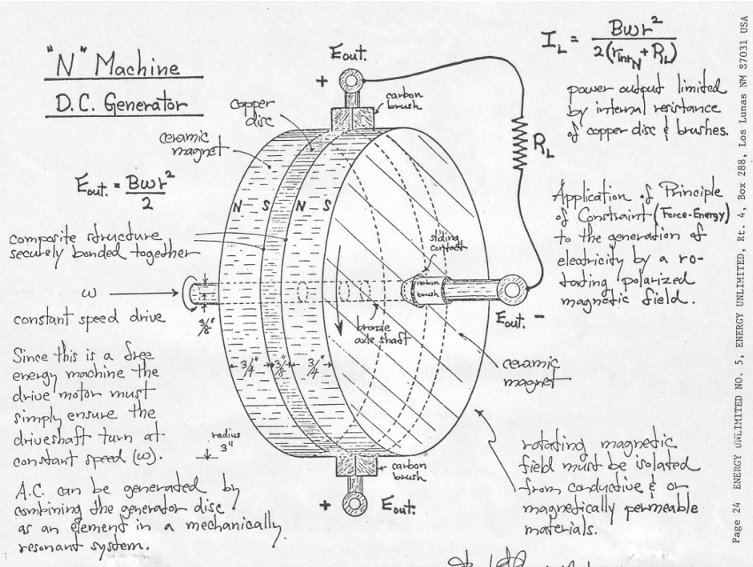 "N" Machine
D.C. Generator
E out. = Bωr²
2
composite structure
securely bonded together
ω
constant speed drive
Since this is a free
energy machine the
drive motor must
simply ensure the
driveshaft turn at
constant speed (ω).
A.C. can be generated by
combining the generator disc
as an element in a mechanically
resonant system.
copper
disc
ceramic
magnet
E out.
+
carbon
brush
N - S
N - S
sliding
contact
carbon
brush
bronze
axle shaft
3/8"
3/4"
3/8"
3/4"
radius
3"
R L
E out. -
ceramic
magnet
carbon
brush
+
E out.
I L = Bωr²
2(r int N + R L)
power output limited
by internal resistance
of copper disc & brushes.
Application of Principle
of Constraint (Force-Energy)
to the generation of
electricity by a ro-
tating polarized
magnetic field.
rotating magnetic
field must be isolated
from conductive & or
magnetically permeable
materials.
Page 24 ENERGY UNLIMITED NO. 5, ENERGY UNLIMITED, Rt. 4, Box 288, Los Lunas NM 87031 USA